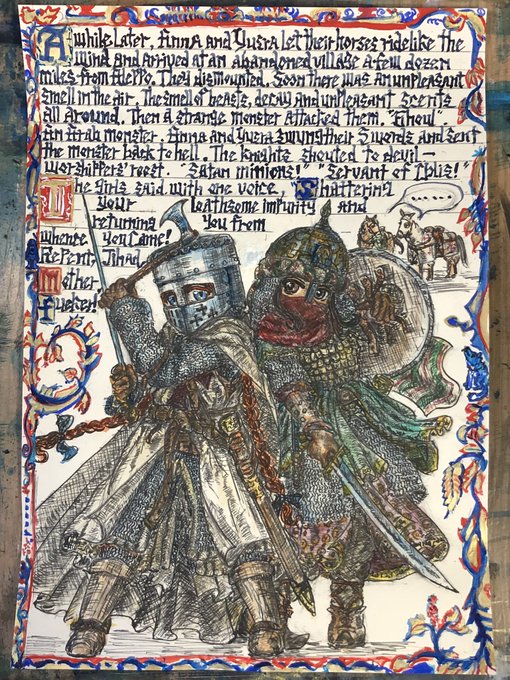 A while Later, Anna and Yusra let their horses ride like the
wind and arrived at an abandoned village a few dozen
miles from Aleppo. They dismounted. Soon there was an unpleasant
smell in the air. The smell of beasts, decay and unpleasant scents
all around. Then a strange monster attacked them. "Ghoul"
an Arab monster. Anna and Yusra swung their swords and sent
the monster back to hell. The knights shouted to devil-
worshippers' roost. "Satan minions!" "Servant of Iblis!"
The girls said with one voice, "Shattering
your loathsome impurity and
returning you from
whence you came!
Repent, Jihad,
Mother
fucker!"
......